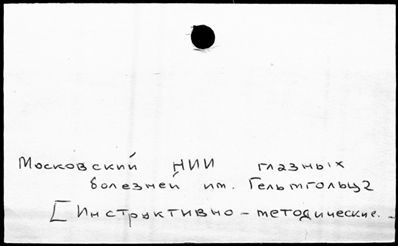 Московский НИИ глазных
болезней им. Гельмгольца
[Инструктивно-методические.